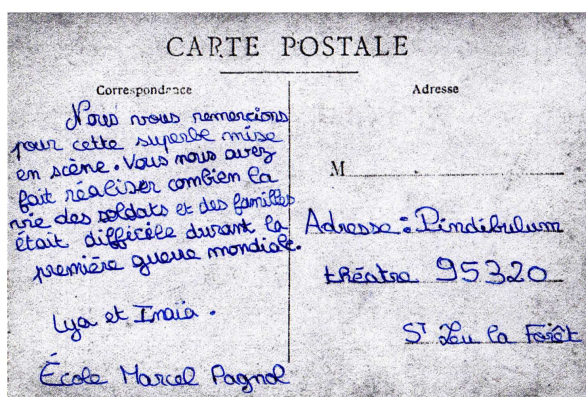 CARTE POSTALE
Correspondance
Nous vous remercions
pour cette superbe mise
en scène. Vous nous avez
fait réaliser combien la
vie des soldats et des familles
était difficile durant la
première guerre mondiale.
Lya et Inaïa.
École Marcel Pagnol
Adresse
M
Adresse : Pindibulum
théatre 95320
ST Leu la Forêt